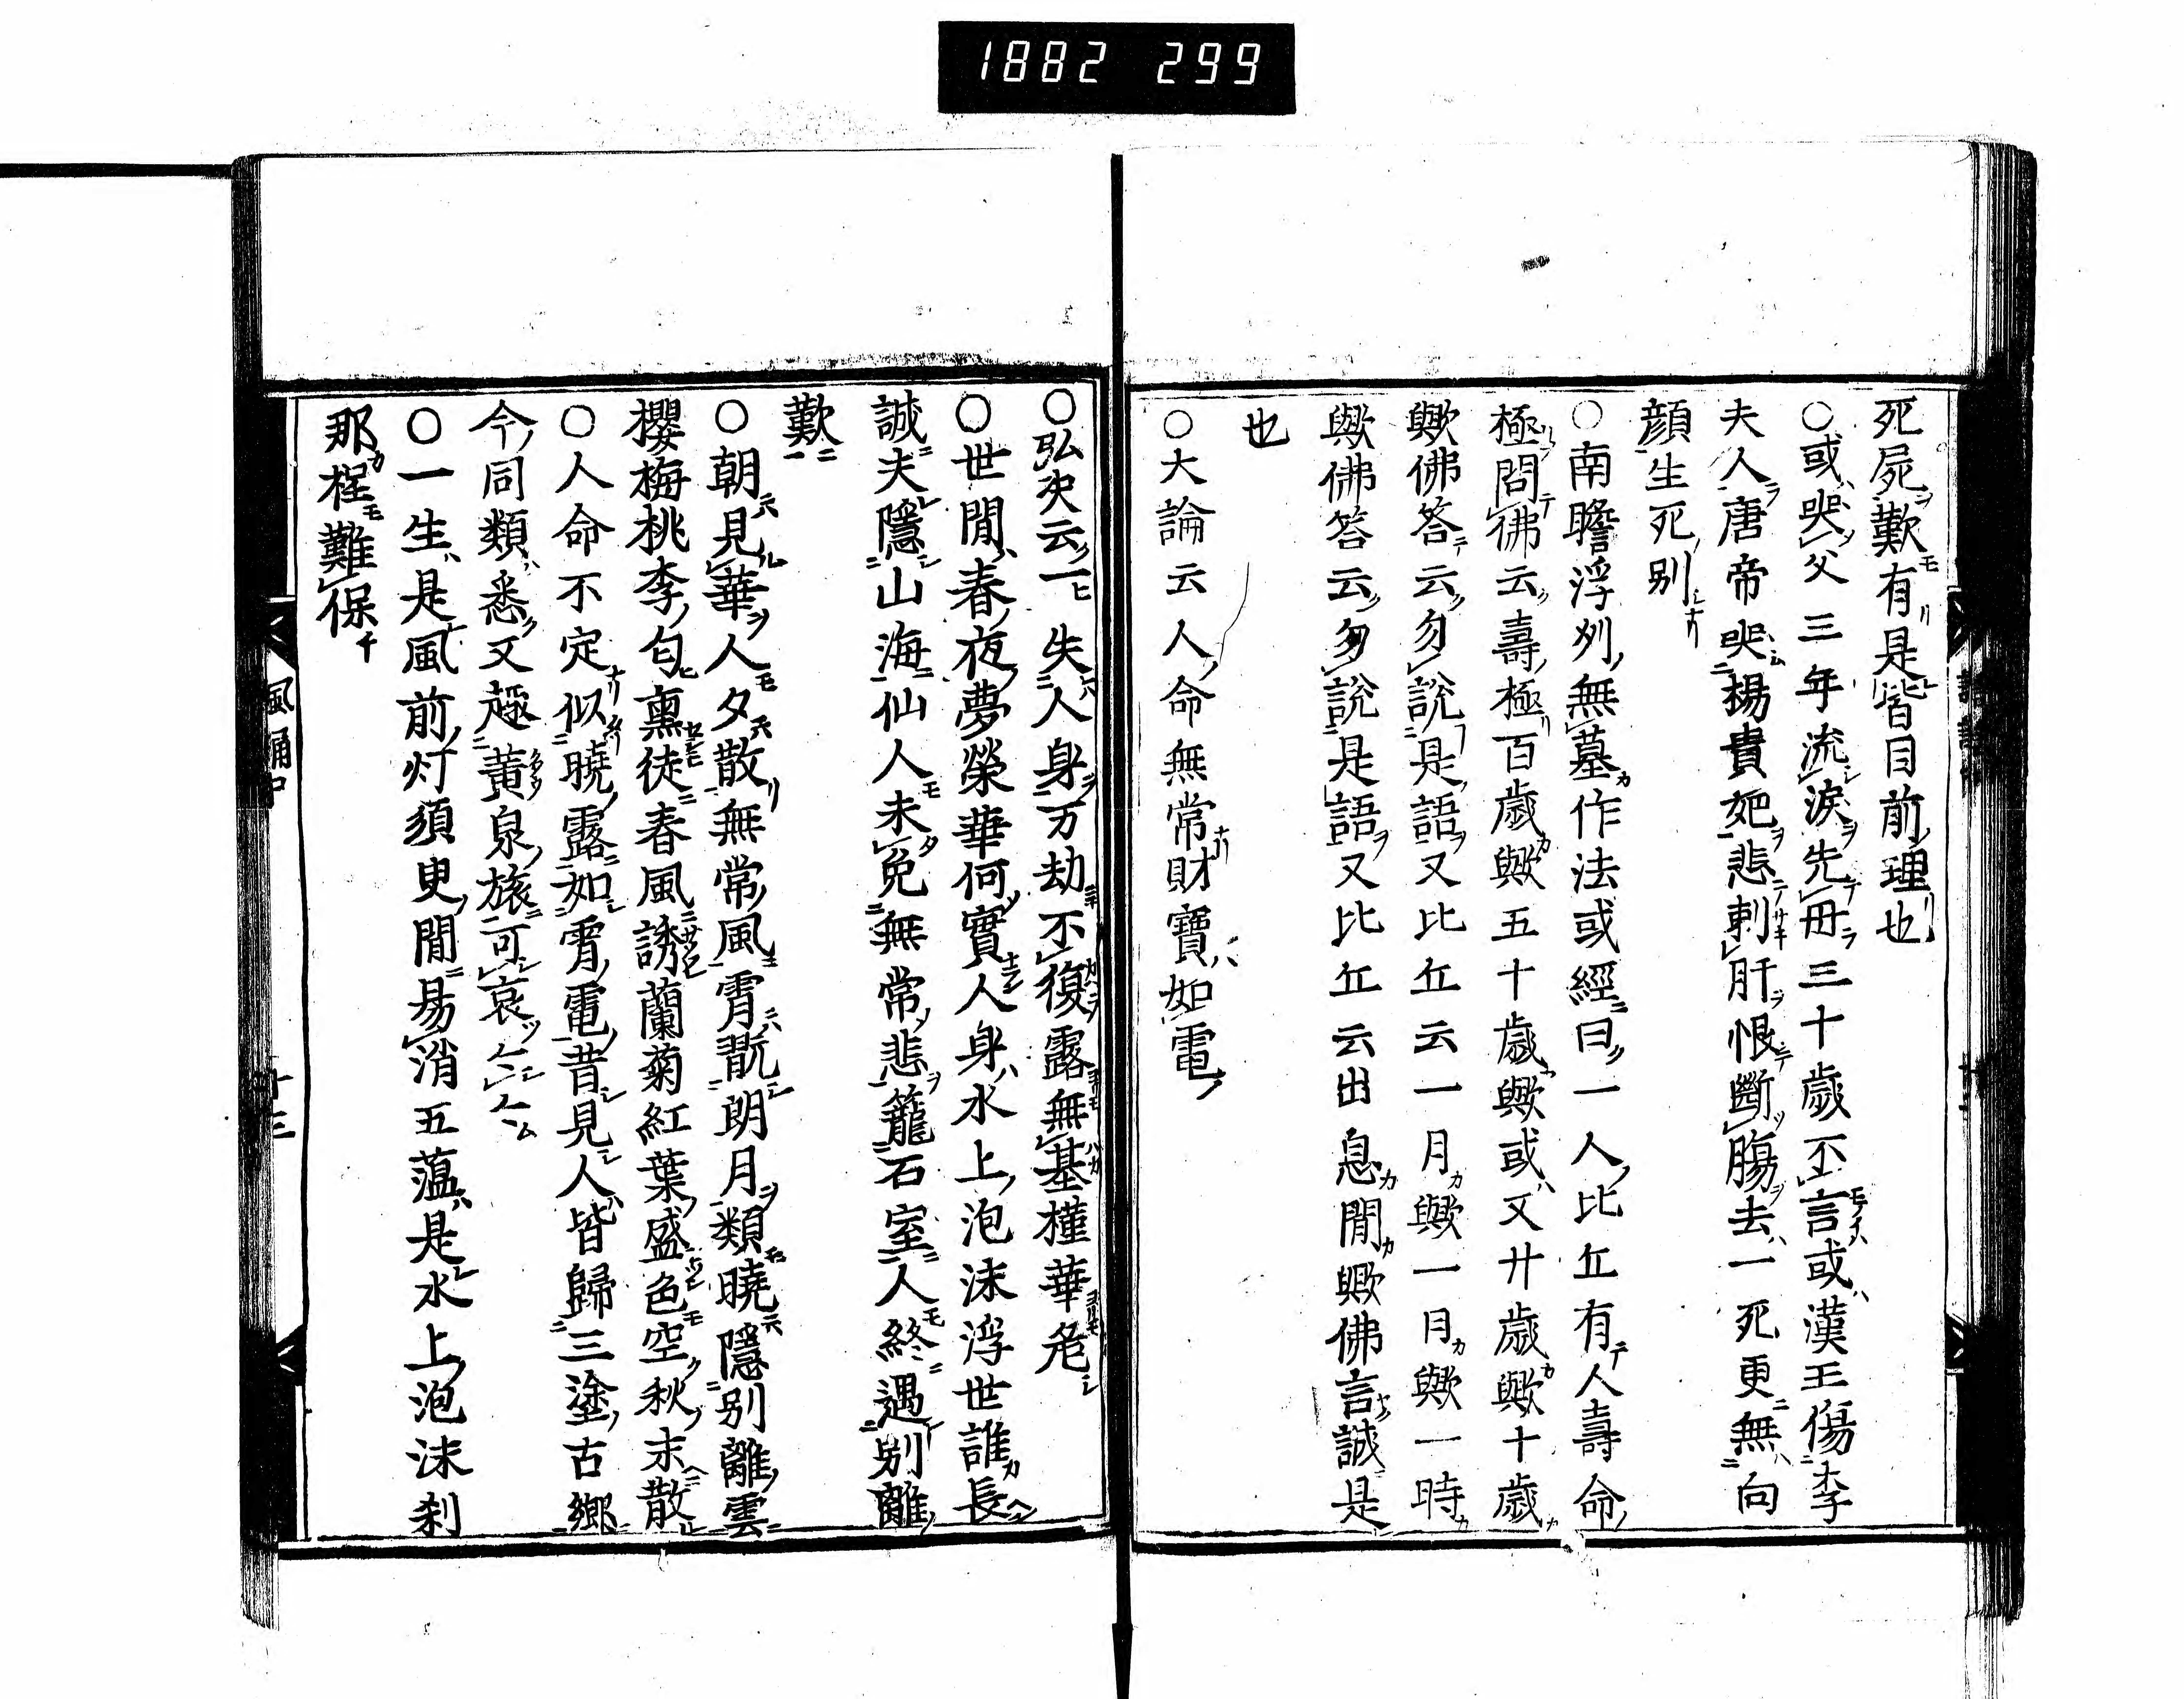 1882 299
死屍歎有是皆目前理也
○或哭父三年流涙先母三十歳不言或漢王傷李
夫人唐帝哭楊貴妃悲刺肝恨斷腸去一死更無向
顔生死別
○南瞻浮州無墓作法或經曰一人比丘有人壽命
極問佛云壽極百歳歟五十歳歟或又廿歳歟十歳
歟佛答云勿説是語又比丘云一月歟一日歟一時
歟佛答云勿説是語又比丘云出息間歟佛言誠是
也
○大論云人命無常財寶如電
○弘决云一失人身万劫不復露無基槿華危
○世間春夜夢榮華何實人身水上泡沫浮世誰長
誠夫隱山海仙人未免無常悲籠石室人終遇別離
歎
○朝見華人夕散無常風宵翫朗月類曉隱別離雲
櫻梅桃李匂薫徒春風誘蘭菊紅葉盛色空秋末散
○人命不定似曉露如宵電昔見人皆歸三塗古郷
今同類悉又趣黄泉旅可哀
○一生是風前灯須臾間易消五薀是水上泡沫刹
那程難保
風誦
十三